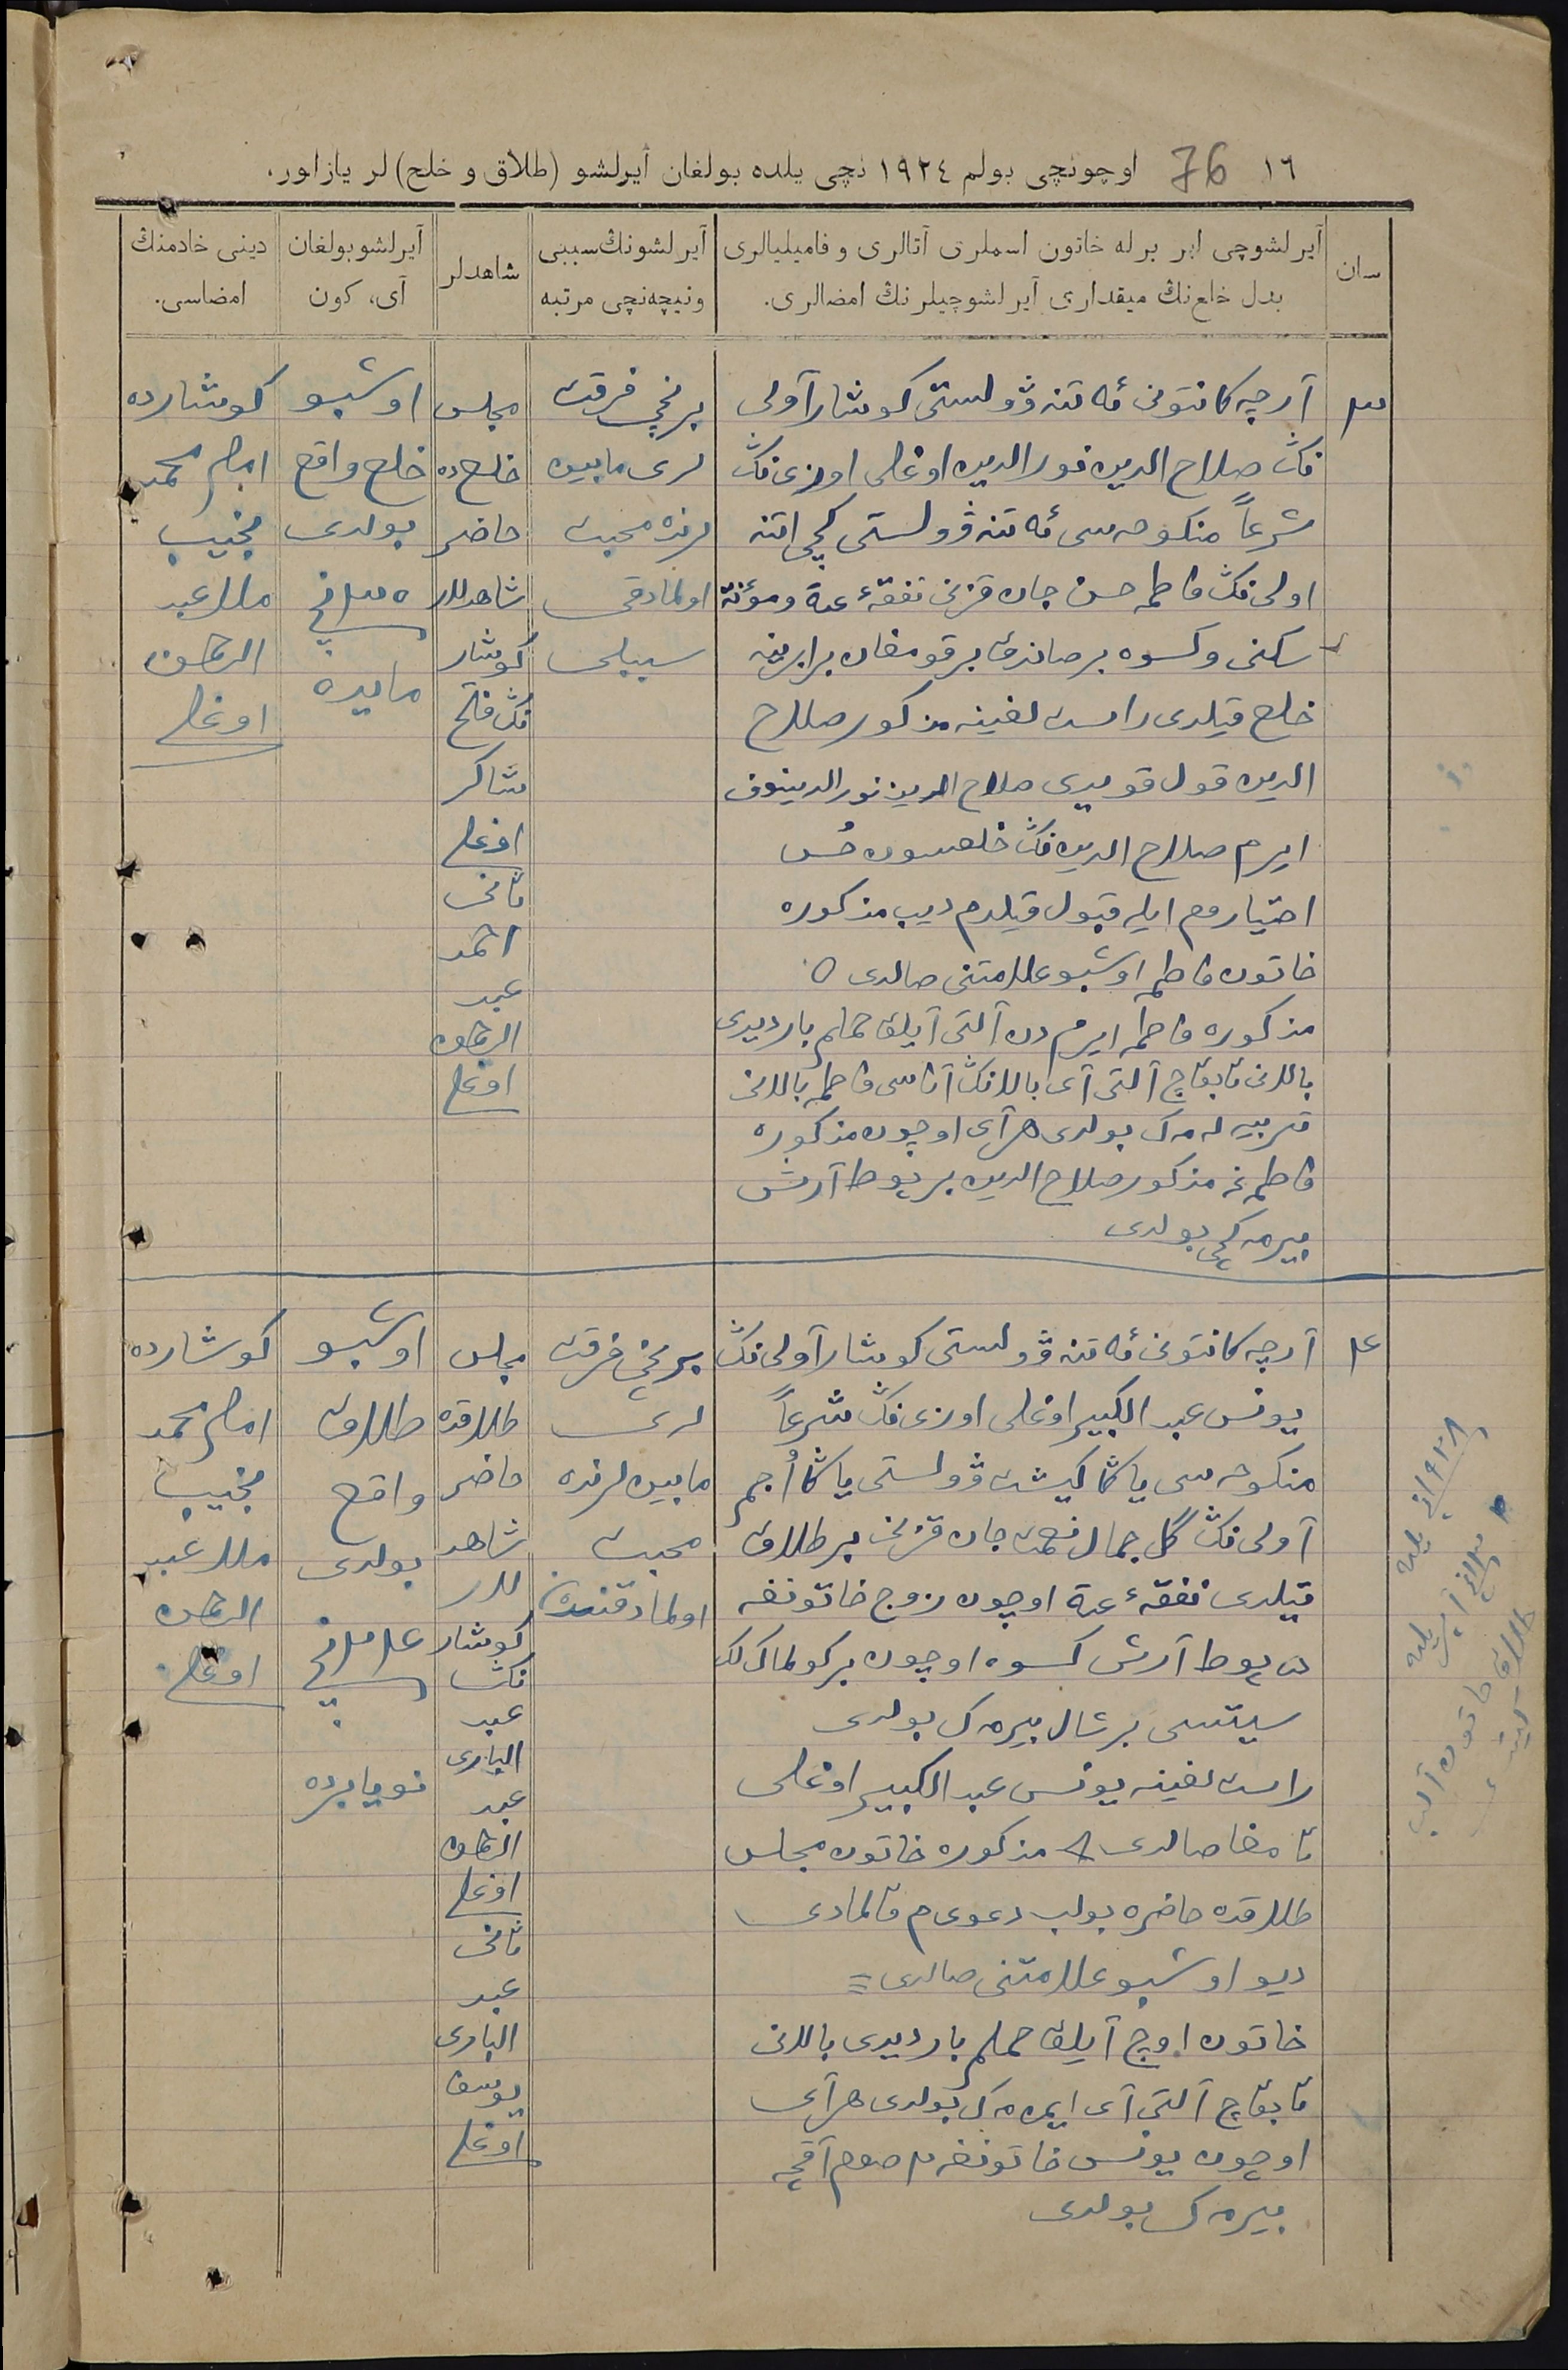 ١٦ 76 اوچونچی بولم ١٩٢٤ نچی یلده بولغان آیرلشو (طلاق و خلح) لر یازلور،
سان
آیرلشوچی ایر برله خاتون اسملری آتالری و فامیلیالری
بدل خلع نڭ میقداری آیرلشوچیلرنڭ امضالری.
آیرلشونڭ سببی
ونیچه‌نچی مرتبه
شاهدلر
آیرلشو بولغان
آی، کون
دینی خادمنڭ
امضاسی.
٣
آرچه کانتونی ئه تنه ڤولستی کوشار آولی
نڭ صلاح الدین نور الدین اوغلی اوزی نڭ
شرعاً منکوحه سی ئه تنه ڤولستی کچی اتنه
اولی نڭ فاطمه حسن جان قزنی نفقهٔ عدة ومؤنة
سکنی وکسوه بر صاندق بر قومغان برابرینه
خلع قیلدی راست لغینه مذکور صلاح
الدین قول قویدی صلاح الدین نور الدینوف
ایرم صلاح الدین نڭ خلعسون حُسن
اختیارم ایله قبول قیلدم دیب مذکوره
خاتون فاطمه اوشبو علامتنی صالدی ٥
مذکوره فاطمه ایرم دن آلتی آیلق حملم بار دیدی
بالانی تابقاچ آلتی آی بالانڭ آناسی فاطمه بالانی
تربیه له مه ک بولدی هر آی اوچون مذکوره
فاطمه غه مذکور صلاح الدین بر پوط آرش
بیرمه کچی بولدی
برنچی فرقت
لری مابین
لرنده محبت
اولمادقی
سببلی
مجلس
خلع ده
حاضر
شاهدلار
کوشار
نڭ فاتح
شاکر
اوغلی
ثانی
احمد
عبد
الرحمن
اوغلی
اوشبو
خلع واقع
بولدی
مایده
کوشارده
امام محمد
نجیب
ملا عبد
الرحمن
اوغلی
٤
آرچه کانتونی ئه تنه ڤولستی کوشار آولی نڭ
یونس عبد الکبیر اوغلی اوزی نڭ شرعاً
منکوحه سی یاڭا کیشت ڤولستی یاڭا اُجم
آولی نڭ گل جمال نعمت جان قزنی بر طلاق
قیلدی نفقهٔ عدة اوچون زوج خاتونغه
٥ پوط آرش کسوه اوچون بر کولماک لک
سیتسی بر شال بیرمه ک بولدی
راست لغینه یونس عبد الکبیر اوغلی
تامغا صالدی مذکوره خاتون مجلس
طلاقده حاضره بولب دعوی م قالمادی
دیو اوشبو علامتنی صالدی =
خاتون اوچ آیلق حملم بار دیدی بالانی
تابقاچ آلتی آی ایمزمه ک بولدی هر آی
اوچون یونس خاتونغه ٣ صوم آقچه
بیرمه ک بولدی
برنچی فرقت
لری
مابین لرنده
محبت
اولمادقندن
مجلس
طلاقده
حاضر
شاهد
لار
کوشار
نڭ
عبد
الباری
عبد
الرحمن
اوغلی
ثانی
عبد
الباری
یوسف
اوغلی
اوشبو
طلاق
واقع
بولدی
نویابرده
کوشارده
امام محمد
نجیب
ملا عبد
الرحمن
اوغلی